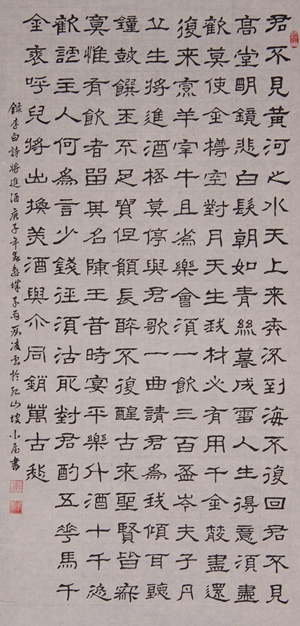 君不見黃河之水天上來奔流到海不復回君不見
高堂明鏡悲白髮朝如青絲暮成雪人生得意須盡
歡莫使金樽空對月天生我材必有用千金散盡還
復來烹羊宰牛且為樂會須一飲三百盃岑夫子丹
丘生將進酒桮莫停與君歌一曲請君為我傾耳聽
鐘鼓饌玉不足貴但願長醉不復醒古來聖賢皆寂
寞惟有飲者留其名陳王昔時宴平樂斗酒十千恣
歡謔主人何為言少錢徑須沽取對君酌五花馬千
金裘呼兒將出換美酒與尒同銷萬古愁
錄李白詩將進酒庚子年於山坡小屋書